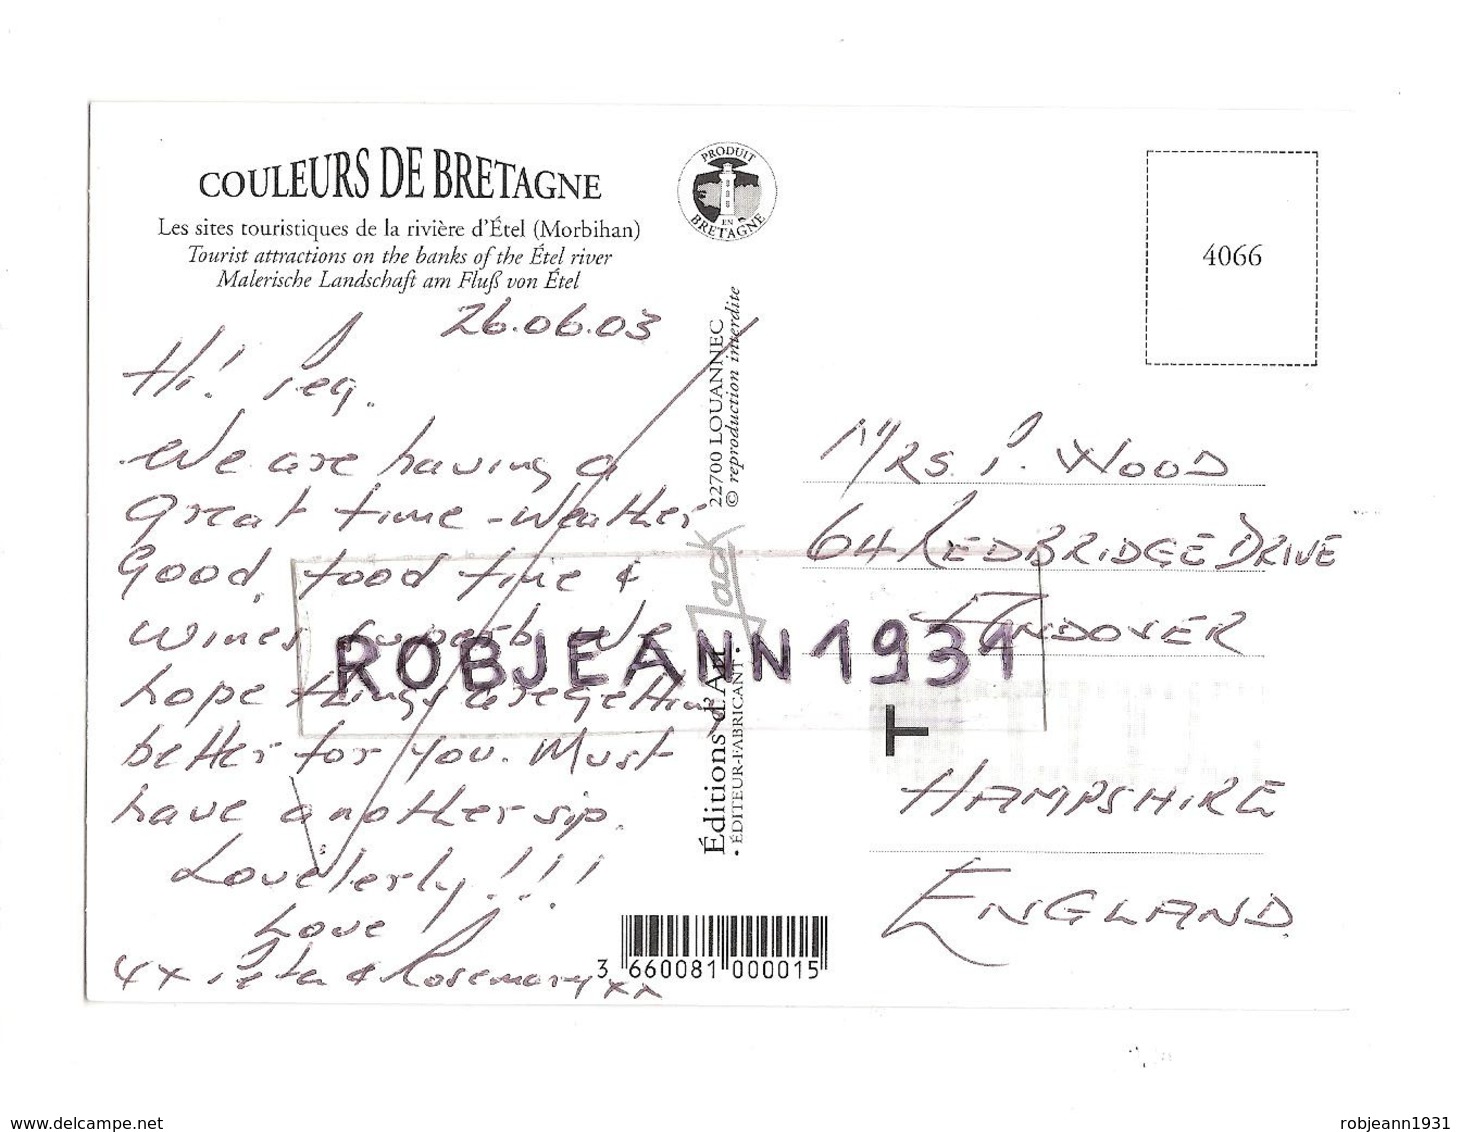 COULEURS DE BRETAGNE
Les sites touristiques de la rivière d'Étel (Morbihan)
Tourist attractions on the banks of the Étel river
Malerische Landschaft am Fluß von Étel
PRODUIT
EN
BRETAGNE
4066
26.06.03
Hi! Peg.
We are having a
Great time - Weather
Good, food fine &
wines superb. We
hope things are getting
better for you. Must
have another sip.
Lovellerly!!!
Love
xx Peter & Rosemary xx
22700 LOUANNEC
© reproduction interdite
Jack
Éditions d'Art
• ÉDITEUR-FABRICANT •
MRS. P. WOOD
64 REDBRIDGE DRIVE
ANDOVER
T
HAMPSHIRE
ENGLAND.
ROBJEANN1931
3 660081 000015
www.delcampe.net
robjeann1931